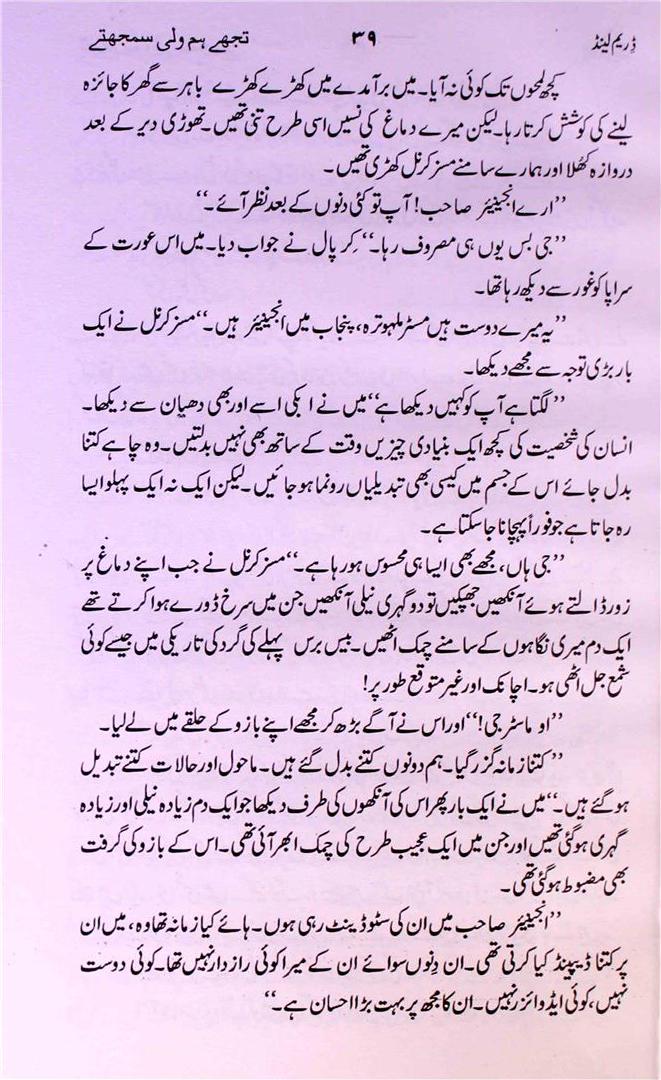 ڈریم لینڈ ۳۹ تجھے ہم ولی سمجھتے
کچھ لمحوں تک کوئی نہ آیا۔ میں برآمدے میں کھڑے کھڑے باہر سے گھر کا جائزہ
لینے کی کوشش کرتا رہا۔ لیکن میرے دماغ کی نسیں اسی طرح تنی تھیں۔ تھوڑی دیر کے بعد
دروازہ کھُلا اور ہمارے سامنے مسز کرنل کھڑی تھیں۔
”ارے انجینیئر صاحب! آپ تو کئی دنوں کے بعد نظر آئے۔“
”جی بس یوں ہی مصروف رہا۔“ کرپال نے جواب دیا۔ میں اس عورت کے
سراپا کو غور سے دیکھ رہا تھا۔
”یہ میرے دوست ہیں مسٹر ملہوترہ، پنجاب میں انجینیئر ہیں۔“ مسز کرنل نے ایک
بار بڑی توجہ سے مجھے دیکھا۔
”لگتا ہے آپ کو کہیں دیکھا ہے“ میں نے ابکی اسے اور بھی دھیان سے دیکھا۔
انسان کی شخصیت کی کچھ ایک بنیادی چیزیں وقت کے ساتھ بھی نہیں بدلتیں۔ وہ چاہے کتنا
بدل جائے اس کے جسم میں کیسی بھی تبدیلیاں رونما ہو جائیں۔ لیکن ایک نہ ایک پہلو ایسا
رہ جاتا ہے جو فوراً پہچانا جا سکتا ہے۔
”جی ہاں، مجھے بھی ایسا ہی محسوس ہو رہا ہے۔“ مسز کرنل نے جب اپنے دماغ پر
زور ڈالتے ہوئے آنکھیں جھپکیں تو دو گہری نیلی آنکھیں جن میں سرخ ڈورے ہوا کرتے تھے
ایک دم میری نگاہوں کے سامنے چمک اٹھیں۔ بیس برس پہلے کی گرد کی تاریکی میں جیسے کوئی
شمع جل اٹھی ہو۔ اچانک اور غیر متوقع طور پر!
”او ماسٹر جی!“ اور اس نے آگے بڑھ کر مجھے اپنے بازو کے حلقے میں لے لیا۔
”کتنا زمانہ گزر گیا۔ ہم دونوں کتنے بدل گئے ہیں۔ ماحول اور حالات کتنے تبدیل
ہو گئے ہیں۔“ میں نے ایک بار پھر اس کی آنکھوں کی طرف دیکھا جو ایک دم زیادہ نیلی اور زیادہ
گہری ہو گئی تھیں اور جن میں ایک عجیب طرح کی چمک ابھر آئی تھی۔ اس کے بازو کی گرفت
بھی مضبوط ہو گئی تھی۔
”انجینیئر صاحب میں ان کی سٹوڈینٹ رہی ہوں۔ ہائے کیا زمانہ تھا وہ، میں ان
پر کتنا ڈیپینڈ کیا کرتی تھی۔ ان دِنوں سوائے ان کے میرا کوئی رازدار نہیں تھا۔ کوئی دوست
نہیں، کوئی ایڈوائزر نہیں۔ ان کا مجھ پر بہت بڑا احسان ہے۔“